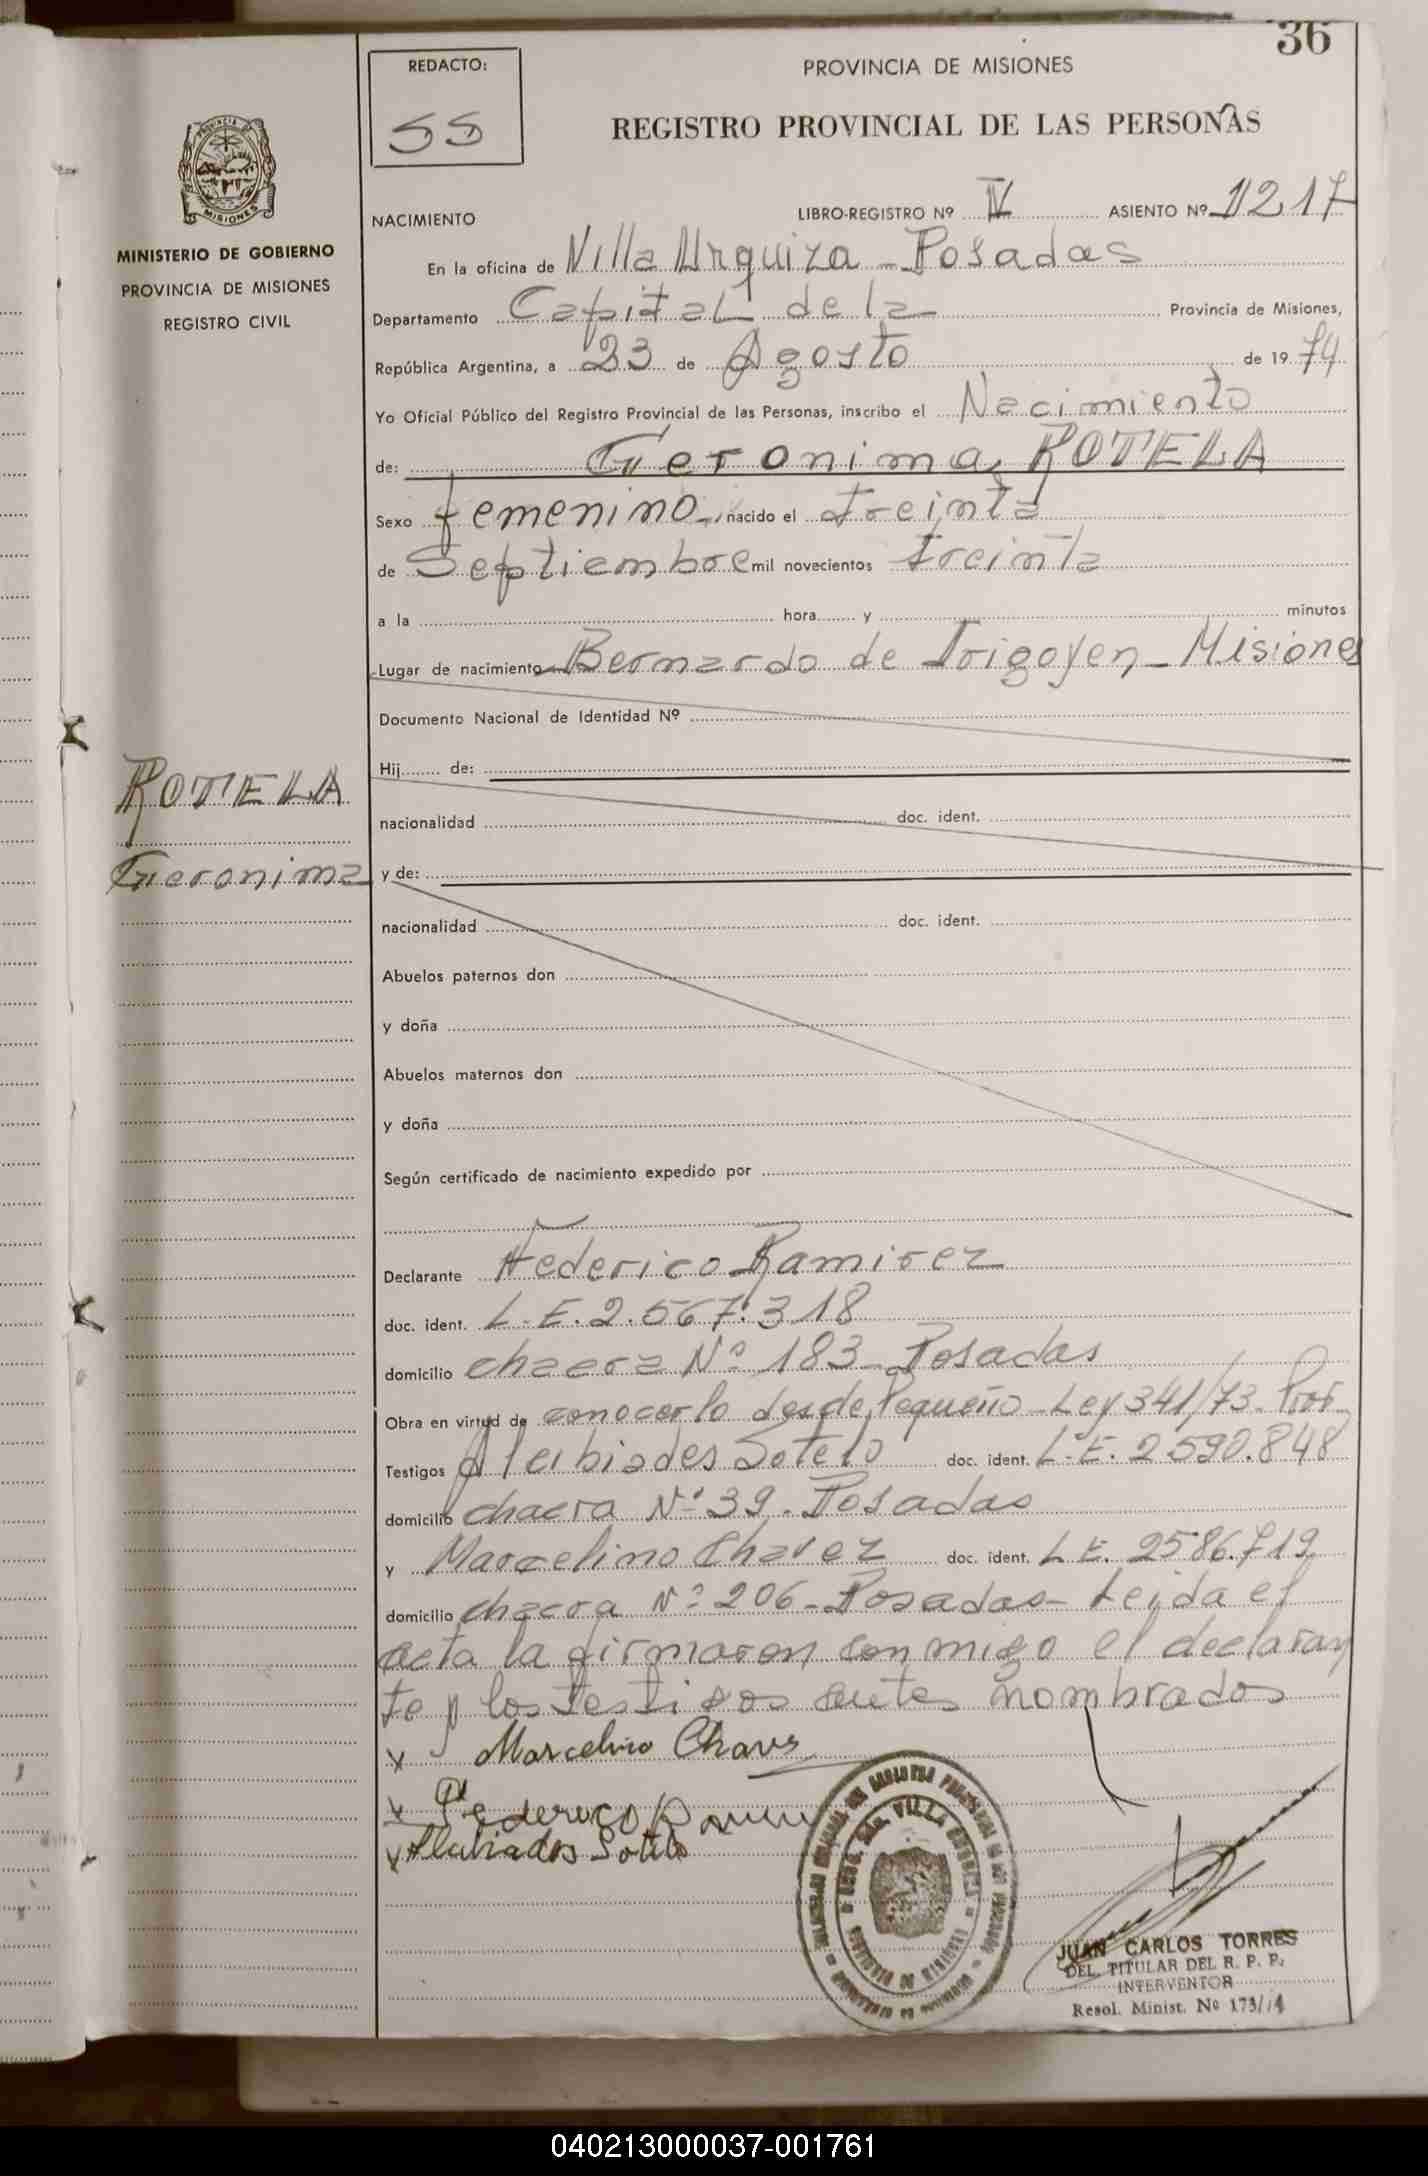 36
REDACTO:
SS
PROVINCIA DE MISIONES
REGISTRO PROVINCIAL DE LAS PERSONAS
MISIONES
MINISTERIO DE GOBIERNO
PROVINCIA DE MISIONES
REGISTRO CIVIL
NACIMIENTO LIBRO-REGISTRO Nº IV ASIENTO Nº 1217
En la oficina de Villa Urquiza - Posadas
Departamento Capital de la Provincia de Misiones,
República Argentina, a 23 de Agosto de 1974
Yo Oficial Público del Registro Provincial de las Personas, inscribo el Nacimiento
de: Geronima ROTELA
Sexo femenino nacido el treinta
de Septiembre mil novecientos treinta
a la hora y minutos
Lugar de nacimiento Bernardo de Irigoyen - Misiones
Documento Nacional de Identidad Nº
Hij de:
ROTELA
Geronima
nacionalidad doc. ident.
y de:
nacionalidad doc. ident.
Abuelos paternos don
y doña
Abuelos maternos don
y doña
Según certificado de nacimiento expedido por
Declarante Federico Ramirez
doc. ident. L.E. 2.567.318
domicilio chacra Nº 183 - Posadas
Obra en virtud de conocerlo desde pequeño - Ley 341/73 - Prov
Testigos Alcibiades Sotelo doc. ident. L.E. 2.590.848
domicilio chacra Nº 39 - Posadas
y Marcelino Chavez doc. ident. L.E. 2586.719
domicilio chacra Nº 206 - Posadas - Leida el
acta la firmaron conmigo el declaran
te y los testigos antes nombrados
x Marcelino Chaves
x Federico
x Alcibiades Sotelo
VILLA URQUIZA
JUAN CARLOS TORRES
DEL. TITULAR DEL R. P. P.
INTERVENTOR
Resol. Minist. Nº 173/74
040213000037-001761